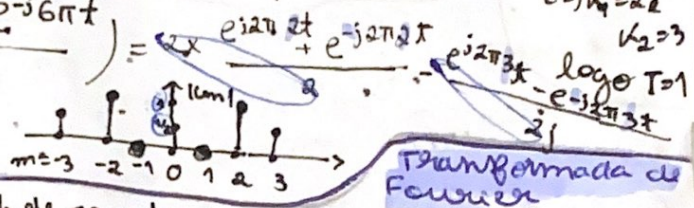 -j6πt
K₂=3
) = 2x e^{j2π2t} + e^{-j2π2t} / 2 - e^{j2π3t} - e^{-j2π3t} / 2j
logo T=1
|Cm|
m=-3 -2 -1 0 1 2 3
Transformada de
Fourier